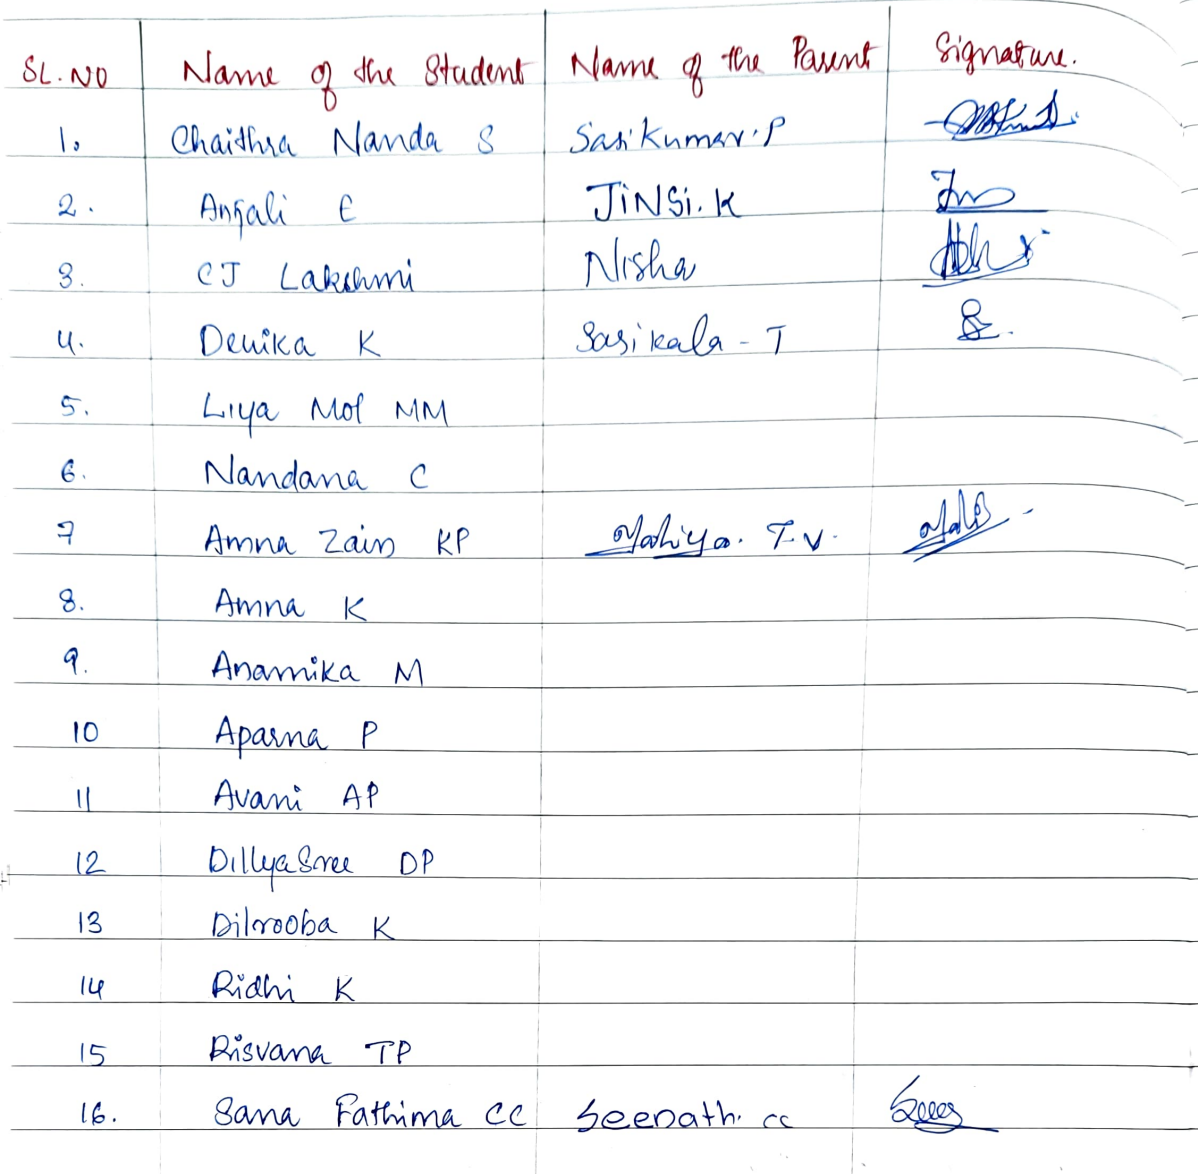 SL.NO Name of the Student Name of the Parent Signature.
1. Chaithra Nanda S Sasikumar.P
2. Anjali E JiNSi.K
3. CJ Lakshmi Nisha
4. Devika K Sasikala - T
5. Liya Mol MM
6. Nandana C
7 Amna Zain KP T.V.
8. Amna K
9. Anamika M
10 Aparna P
11 Avani AP
12 DillyaSree DP
13 Dilrooba K
14 Ridhi K
15 Risvana TP
16. Sana Fathima CC Seenath. cc